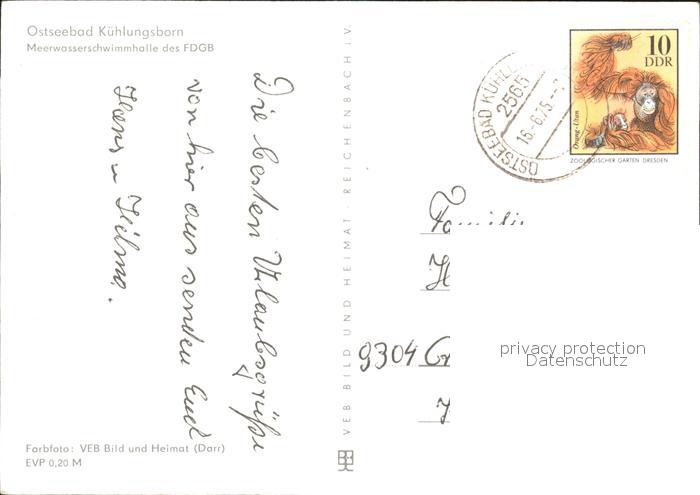 Ostseebad Kühlungsborn
Meerwasserschwimmhalle des FDGB
Die besten Urlaubsgrüße
von hier aus senden Euch
Hans u
Farbfoto: VEB Bild und Heimat (Darr)
EVP 0,20 M
VEB BILD UND HEIMAT · REICHENBACH i.V.
OSTSEEBAD KÜHL
2565
16.-6.75.-
10
DDR
Orang-Utan
ZOOLOGISCHER GARTEN DRESDEN
Familie
H
9304
privacy protection
Datenschutz